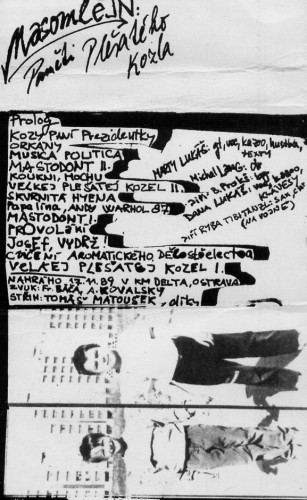 Masomlejn:
Paměti Plešatého
Kozla
Prolog
KOZY PANÍ PREZIDENTKY
ORKÁNY
MUSICA POLITICA
MASTODONT II.
KOUKNI, HOCHU
VELKEJ PLEŠATEJ KOZEL II.
SKVRNITÁ HYENA
Papalína ANDY WARHOL 87
MASTODONT I.
PROVOLÁNÍ
JOSEF, VYDRŽ!
CVIČENÍ AROMATICKÉHO DĚLOSTŘELECTVA
VELKEJ PLEŠATEJ KOZEL I.
NAHRÁNO 17.11.89 V KM DELTA, OSTRAVA
ZVUK: F. A. KOVALSKÝ
STŘIH: TOMÁŠ MATOUŠEK, díky
MARTY LUKÁŠ: gt, voc, kazoo,
TEXTY
Michal Láng: dr
Jiří B.
DANA LUKÁŠ: voc, kazoo,
KLÁVESY
JIŘÍ RYBA TIBITANZL: SAX
(NA VOJNĚ)